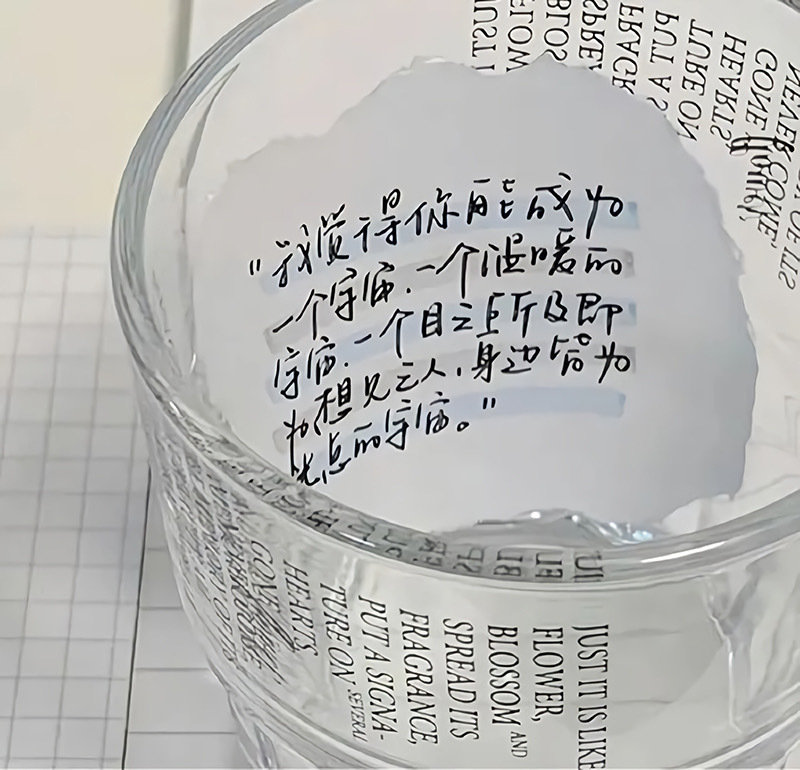 "我觉得你能成为
一个宇宙.一个温暖的
宇宙.一个目之所及即
为想见之人,身边皆为
光点的宇宙。"
JUST IT IS LIKE
FLOWER,
BLOSSOM AND
SPREAD ITS
FRAGRANCE,
PUT A SIGNA-
TURE ON SEVERAL
HEARTS
GONE
JUST I
FLOW
BLOS
SPREA
FRAGR
PUT A S
TURE ON
HEARTS
GONE
NEVER GONE'